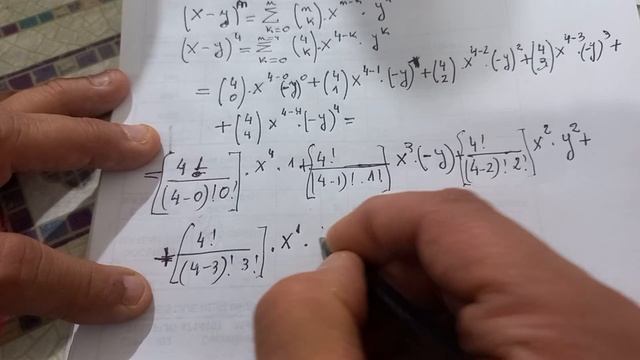 (x-y)^m = \sum_{k=0}^{m} (m k) · x^{m-k} · y^k
(x-y)^4 = \sum_{k=0}^{m=4} (4 k) · x^{4-k} · y^k
= (4 0) · x^{4-0} · (-y)^0 + (4 1) x^{4-1} · (-y)^1 + (4 2) · x^{4-2} · (-y)^2 + (4 3) x^{4-3} · (-y)^3 +
+ (4 4) x^{4-4} · (-y)^4 =
= [4!/(4-0)!0!] · x^4 · 1 + [4!/(4-1)! · 1!] x^3 · (-y) + [4!/(4-2)! 2!] x^2 · y^2 +
+ [4!/(4-3)! 3!] · x^1 ·